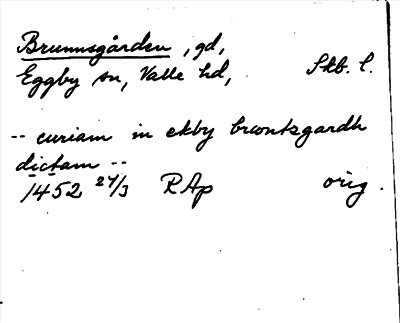 Brunnsgården, gd,
Eggby sn, Valle hd, Skb. l.
-- curiam in ekby brwntzgardh
dictam --
1452 27/3 RAp orig.